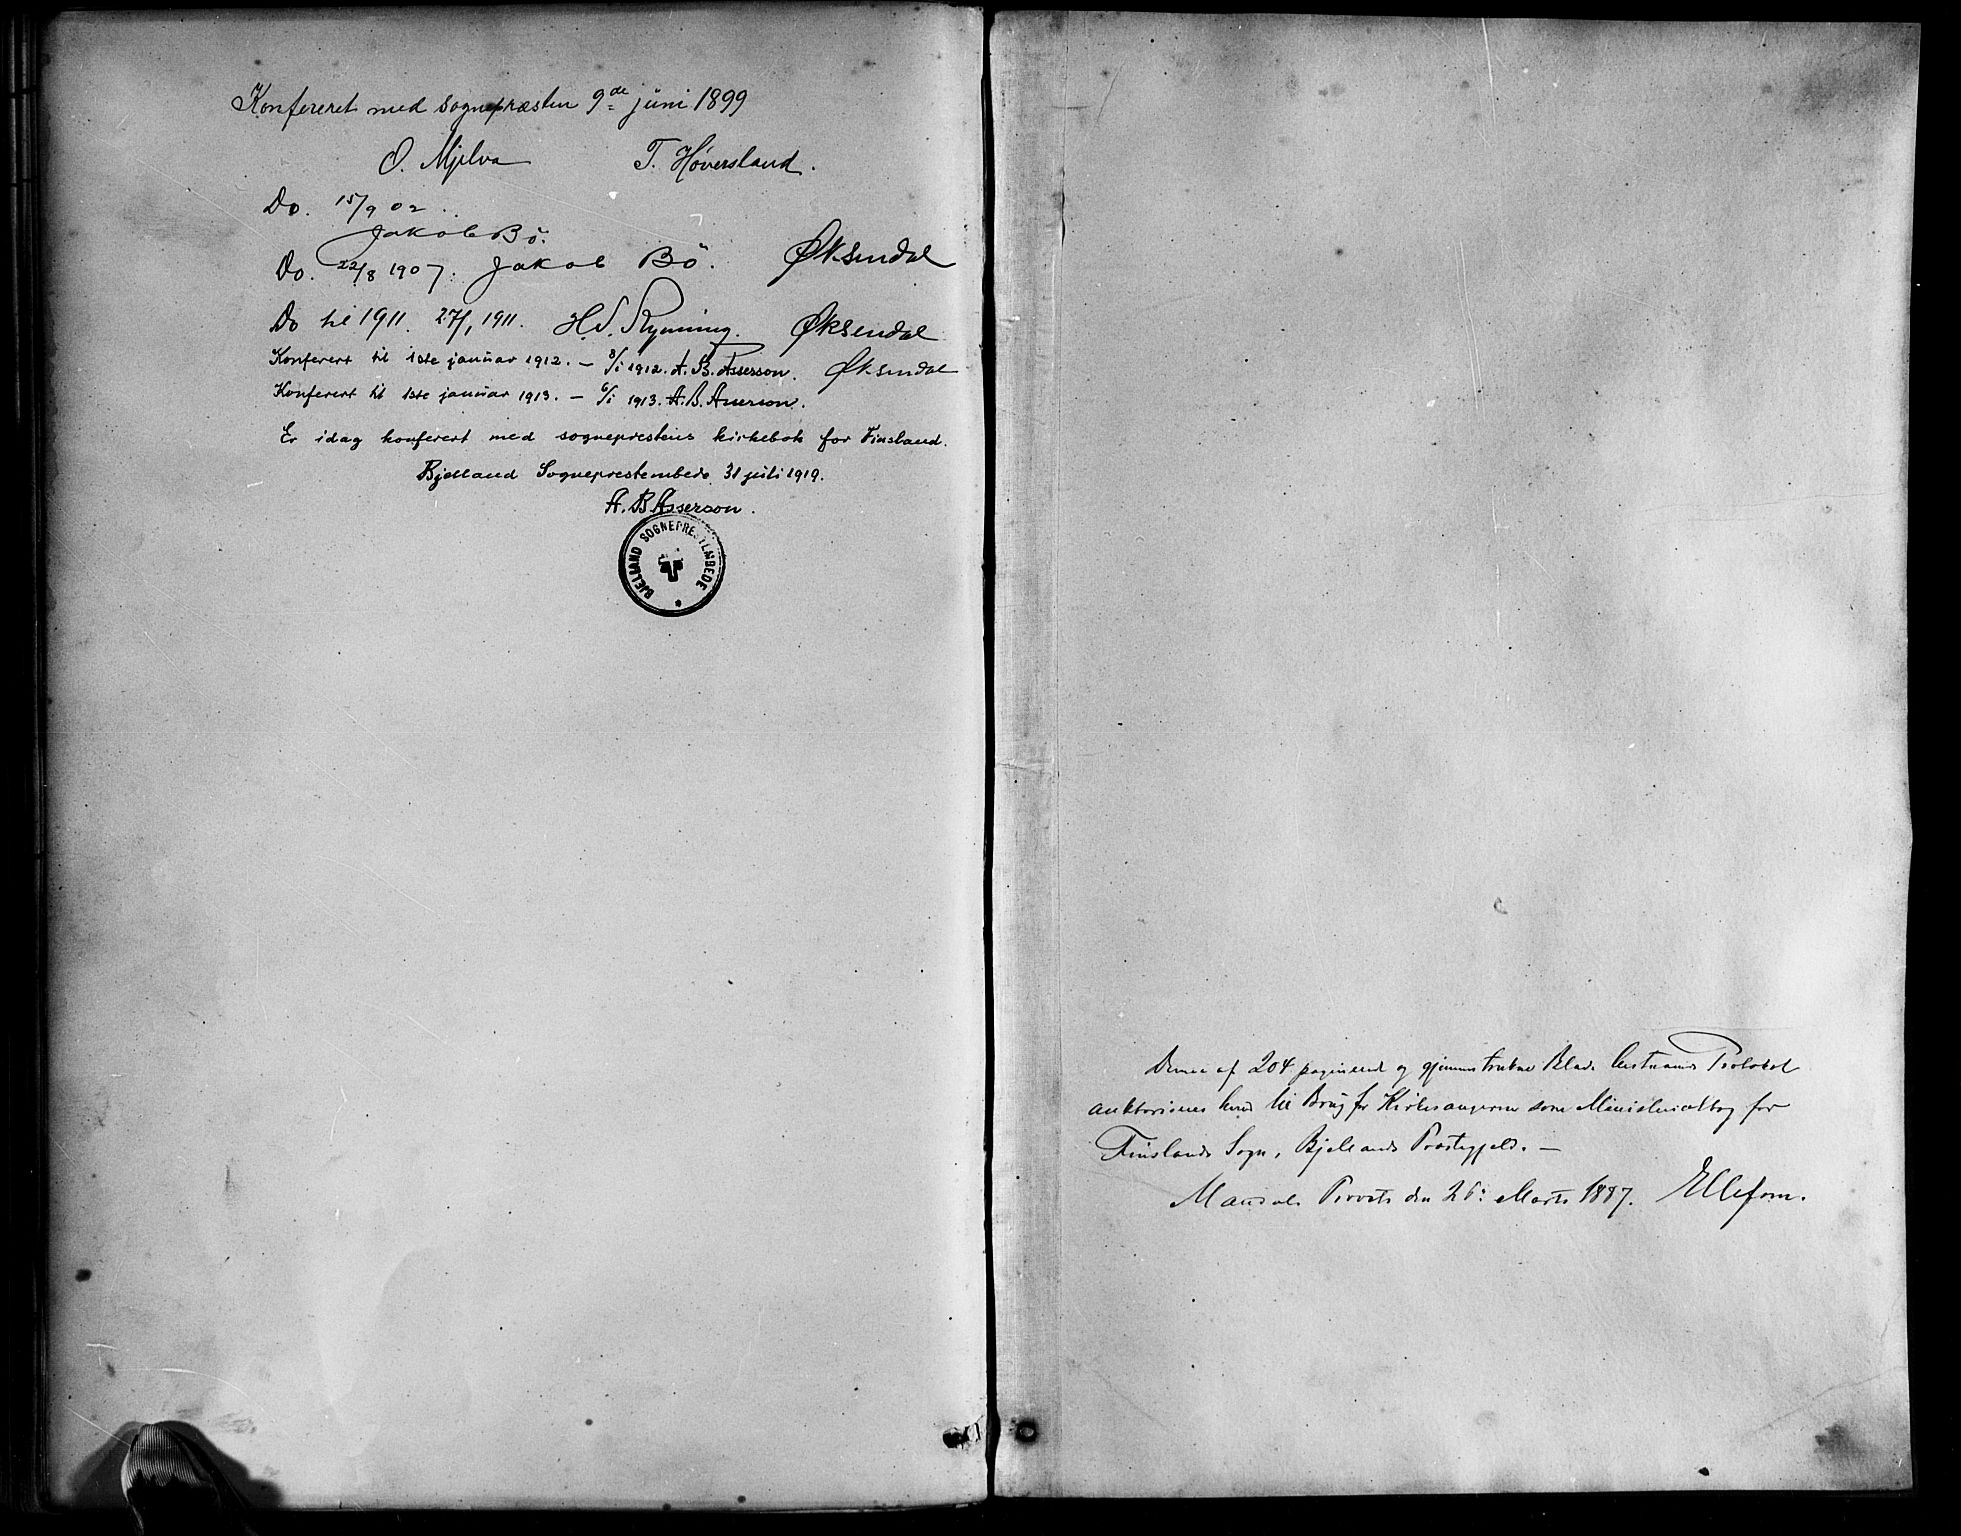 Konfereret med sognepræsten 9de juni 1899
O. Mjelva T. Høversland.
Do. 15/9 02
Jakob Bö.
Do. 22/8 1907. Jakob Bö. Øksendal
Do til 1911. 27/1 1911. H. J. Rynning. Øksendal
Konferert til 1ste januar 1912. – 8/1 1912. A. B. Asserson. Øksendal
Konferert til 1ste januar 1913. – 6/1 1913. A. B. Asserson.
Er idag konferert med sogneprestens kirkebok for Finsland.
Bjelland Sogneprestembede 31 juli 1919.
A. B Asserson.
BJELLAND SOGNEPRESTEMBEDE
Denne af 204 paginerede og gjennemtrukne Blade bestaaende Protokol
auktoriseres herved til Brug for Kirkesangeren som Ministerialbog for
Finslands Sogn, Bjellands Præstegjeld. —
Mandals Provsti den Marts 1887. Ellefsen.